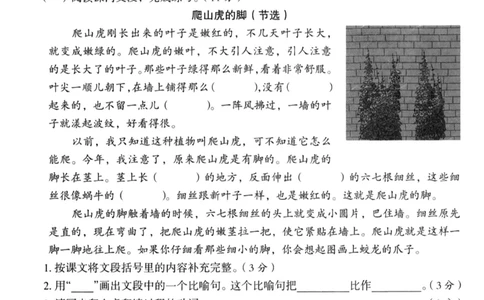 爬山虎的脚（节选）
爬山虎刚长出来的叶子是嫩红的，不几天叶子长大，
就变成嫩绿的。爬山虎的嫩叶，不大引人注意，引人注意
的是长大了的叶子。那些叶子绿得那么新鲜，看着非常舒服。
叶尖一顺儿朝下，在墙上铺得那么（ ），没有（ ）
起来的，也不留一点儿（ ）。一阵风拂过，一墙的叶
子就漾起波纹，好看得很。
以前，我只知道这种植物叫爬山虎，可不知道它怎么
能爬。今年，我注意了，原来爬山虎是有脚的。爬山虎的
脚长在茎上。茎上长（ ）的地方，反面伸出（ ）的六七根细丝，这些细
丝很像蜗牛的（ ）。细丝跟新叶子一样，也是嫩红的。这就是爬山虎的脚。
爬山虎的脚触着墙的时候，六七根细丝的头上就变成小圆片，巴住墙。细丝原先
是直的，现在弯曲了，把爬山虎的嫩茎拉一把，使它紧贴在墙上。爬山虎就是这样一
脚一脚地往上爬。如果你仔细看那些细小的脚，你会想起图画上蛟龙的爪子。
1.按课文将文段括号里的内容补充完整。（3分）
2.用“____”画出文段中的一个比喻句。这个比喻句把________比作________。（3分）